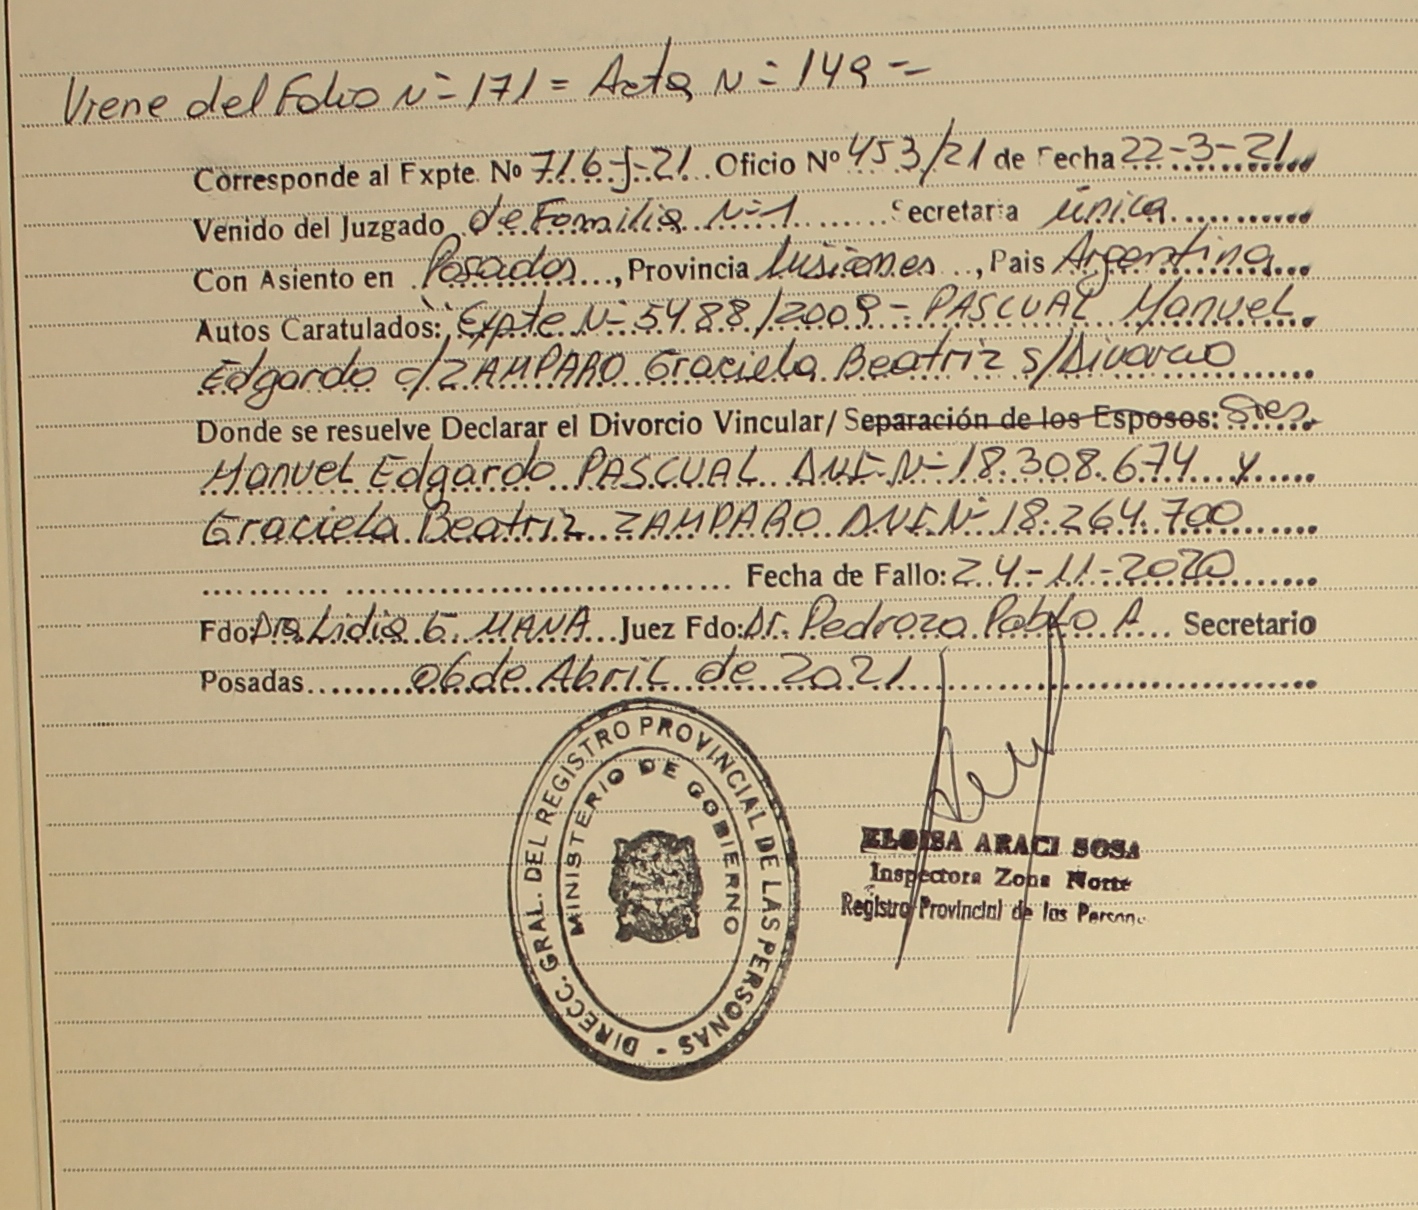 Viene del Folio N= 171 = Acta N= 149 =
Corresponde al Expte. Nº 716-J-21. Oficio Nº 453/21 de Fecha 22-3-21
Venido del Juzgado de Familia N=1 Secretaria única
Con Asiento en Posadas, Provincia Misiones, Pais Argentina
Autos Caratulados: "Expte N= 5488/2009 - PASCUAL Manuel
Edgardo c/ZAMPARO Graciela Beatriz s/Divorcio
Donde se resuelve Declarar el Divorcio Vincular/ Separación de los Esposos: Sres.
Manuel Edgardo PASCUAL DNI-N= 18.308.674 y
Graciela Beatriz ZAMPARO DNI.N= 18.264.700
Fecha de Fallo: 24-11-2020
Fdo: Dra Lidia E. MANA Juez Fdo: Dr. Pedrozo Pablo A. Secretario
Posadas 06 de Abril de 2021
DIRECC. GRAL. DEL REGISTRO PROVINCIAL DE LAS PERSONAS -
MINISTERIO DE GOBIERNO
ELOISA ARACI SOSA
Inspectora Zona Norte
Registro Provincial de las Persona